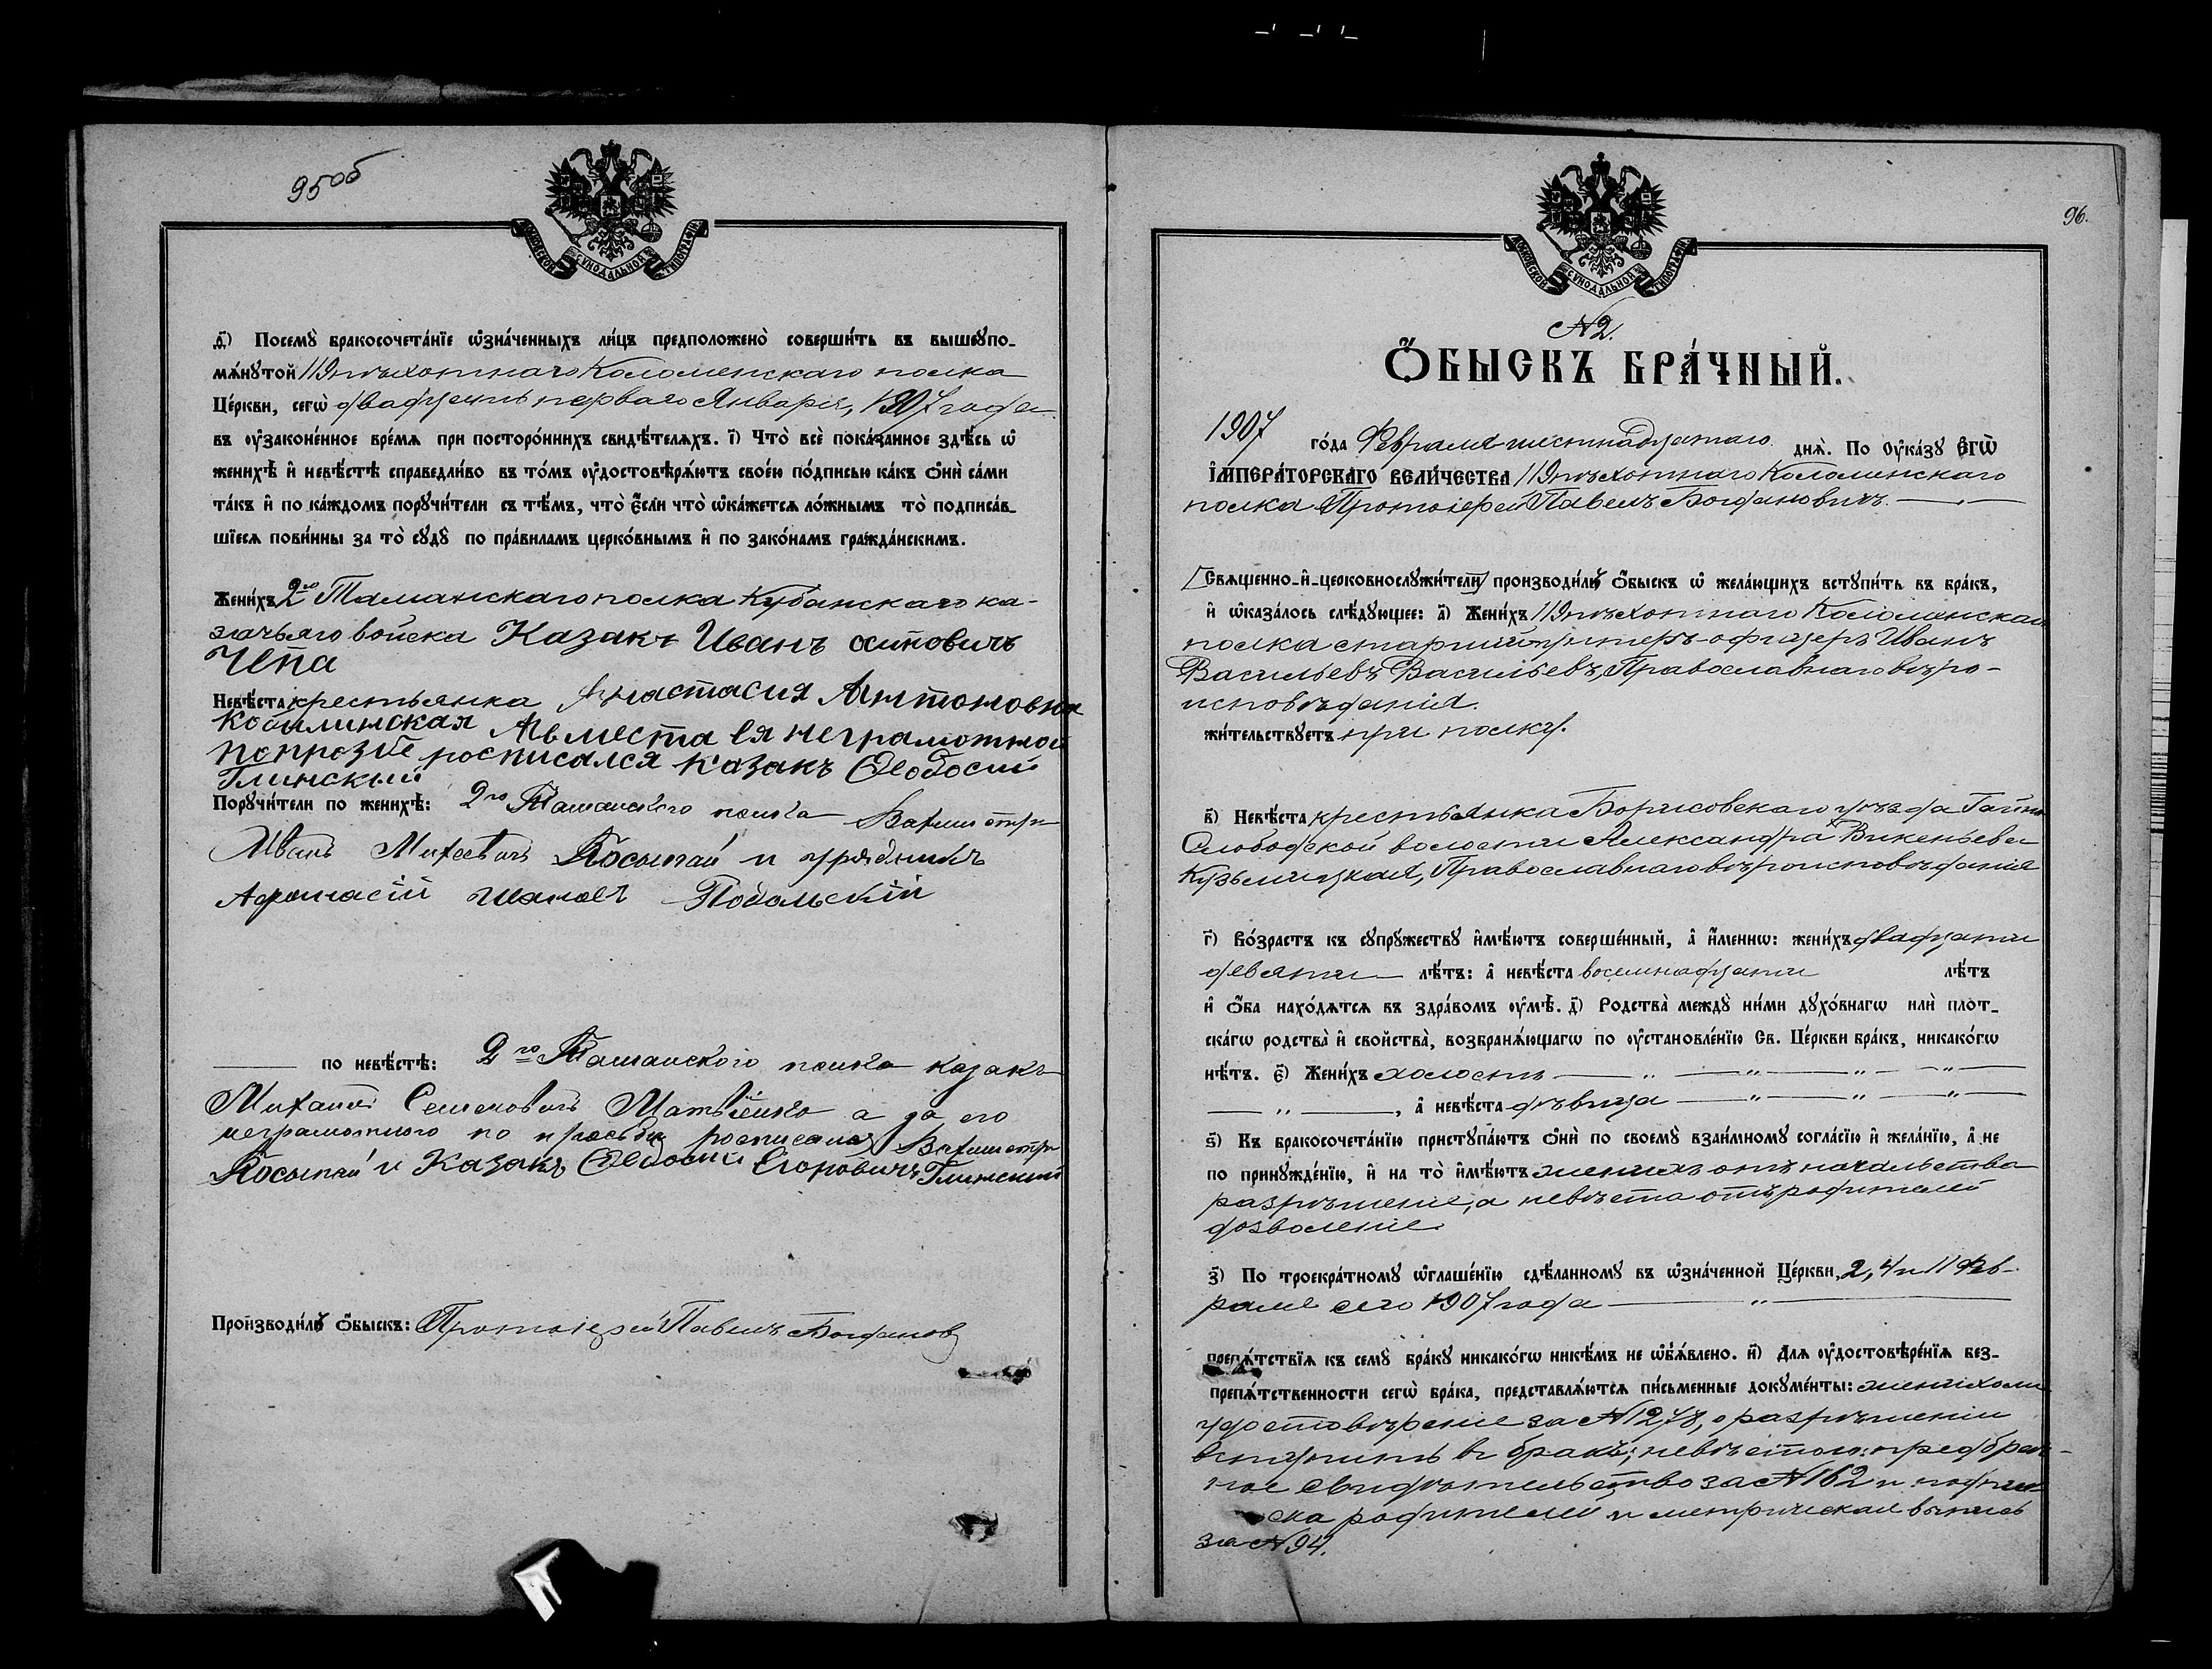 95об
МОСКОВСКОЙ СУНОДАЛЬНОЙ ТИПОГРАФІИ
д҃) Посемꙋ̀ бракосочета́нїе ѡ҆зна́ченныхъ ли́цъ предположено̀ соверши́ть въ вышеꙋпо-
мѧ́нꙋтой 119 пѣхотнаго Коломенскаго полка
Це́ркви, сегѡ̀ двадцать перваго Января, 1907 года
въ ᲂу҆законе́нное вре́мѧ при посторо́ннихъ свидѣ́телѧхъ. і҃) Что̀ всѐ пока́занное здѣ́сь ѡ҆
женихѣ̀ и҆ невѣ́стѣ справедли́во въ то́мъ ᲂу҆достовѣрѧ́ютъ свое́ю по́дписью ка́къ ѻ҆нѝ са́ми
та́къ и҆ по ка́ждомъ порꙋчи́тели съ тѣ́мъ, что̀ є҆́сли что̀ ѡ҆ка́жетсѧ ло́жнымъ то̀ подписа́в-
шїесѧ пови́нны за то̀ сꙋдꙋ̀ по пра́виламъ церко́внымъ и҆ по зако́намъ гражда́нскимъ.
Жени́хъ 2го Таманскаго полка Кубанскаго ка-
зачьяго войска Казакъ Иванъ
Чепа
Невѣ́ста крестьянка Анастасия Антоновна
Кобылинская А вместа ея неграмотной
попрозбе росписался казакъ Феодосий
Глинский
Порꙋчи́тели по женихѣ̀: 2го Таманского полка Вахмистръ
Иванъ Михеевичъ Косыпай и урядникъ
Афонасій Подольскій
по невѣ́стѣ: 2го Таманского полка казакъ
Михаилъ Семеновичъ Матвіенко а за его
неграмотного по просьбе росписался Вахмистръ
Косыпай и Казакъ Феодосий Егоровичъ Глинский
Произво́дилъ ѻ҆́быскъ: Протоіерей Павелъ Богданов
96.
МОСКОВСКОЙ СУНОДАЛЬНОЙ ТИПОГРАФІИ
№ 2.
Ѻ҆́БЫСКЪ БРА́ЧНЫЙ.
1907 го́да Февраля шестнадцатаго днѧ̀. По Оу҆ка́зꙋ Є҆гѡ̀
І҆мпера́торскагѡ вели́чества 119 пѣхотнаго Коломенскаго
полка Протоіерей Павелъ Богдановичъ
Свѧще́нно-и҆-церковнослꙋжи́тели производи́ли ѻ҆́быскъ ѡ҆ жела́ющихъ встꙋпи́ть въ бра́къ,
и҆ ѡ҆каза́лось слѣ́дꙋющее: а҃) Жени́хъ 119 пѣхотнаго Коломенскаго
полка старшій унтеръ-офицеръ Иванъ
Васильевъ Васильевъ, Православнаго вѣро-
исповѣданія.
жи́тельствꙋетъ при полку.
в҃) Невѣ́ста крестьянка Борисовскаго уѣзда Гайно
Слободской волости Александра Викентьева
Кузьмицкая, Православнаго вѣроисповѣданія
г҃) Во́зрастъ къ сꙋпрꙋ́жествꙋ и҆мѣ́ютъ соверше́нный, а҆ и҆́меннѡ: жени́хъ двадцати
девяти лѣ́тъ: а҆ невѣ́ста восемнадцати лѣ́тъ
и҆ ѻ҆́ба нахо́дѧтсѧ въ здра́вомъ ᲂу҆мѣ̀. д҃) Родства̀ междꙋ̀ ни́ми дꙋхо́внагѡ и҆лѝ плот-
ска́гѡ родства̀ и҆ свойства̀, возбранѧ́ющагѡ по ᲂу҆становле́нїю Св. Це́ркви бра́къ, никако́гѡ
нѣ́тъ. є҃) Жени́хъ холостъ
, а҆ невѣ́ста дѣвица
ѕ҃) Къ бракосочета́нїю пристꙋпа́ютъ ѻ҆нѝ по своемꙋ̀ взаи́мномꙋ согла́сїю и҆ жела́нїю, а҆ не
по принꙋжде́нїю, и҆ на то̀ и҆мѣ́ютъ женихъ отъ начальства
разрѣшеніе, а невѣста отъ родителей
дозволеніе.
з҃) По троекра́тномꙋ ѡ҆глаше́нїю сдѣ́ланномꙋ въ ѡ҆зна́ченной Це́ркви, 2, 4 и 11 Фев-
раля сего 1907 года
препѧ́тствїѧ къ семꙋ̀ бра́кꙋ никако́гѡ никѣ́мъ не ѡ҆б̾ѧ́влено. и҃) Длѧ ᲂу҆достовѣре́нїѧ без-
препѧ́тственности сегѡ̀ бра́ка, представлѧ́ютсѧ пи́сьменные докꙋме́нты: женихомъ
удостовѣреніе за № 1278, о разрѣшеніи
вступить въ бракъ; невѣстою: предбрач-
ное свидѣтельство за № 162 и подпи-
ска родителей и метрическая выпись
за № 94.